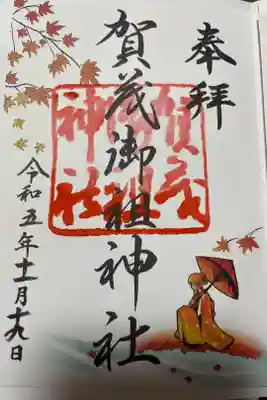 奉拝
賀茂御祖神社
令和五年十一月十九日
賀茂
御祖
神社